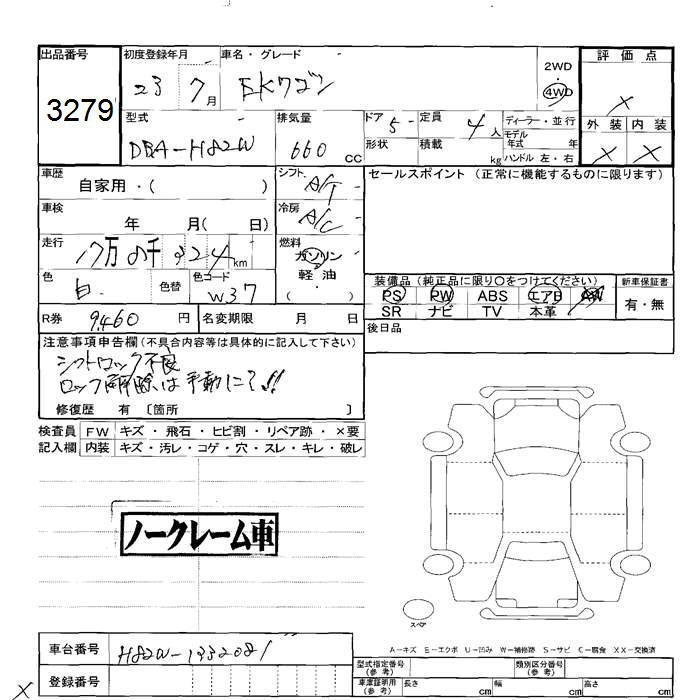 出品番号 初度登録年月 車名・グレード 2WD 評価点
3279 23 7月 EKワゴン ・ 4WD X
型式 排気量 ドア 5 定員 4人 ディーラー・並行 外装 内装
DBA-H82W 660 CC 形状 積載 kg モデル年式 年 X X
ハンドル 左・右
車歴 自家用・( ) シフト A/T セールスポイント (正常に機能するものに限ります)
車検 年 月( 日) 冷房 A/C
走行 km 燃料 ガソリン
色 白 色替 色コード W37 軽油 ( )
装備品(純正品に限り○をつけてください) 新車保証書
PS PW ABS エアB AW 有・無
SR ナビ TV 本革
R券 9,460円 名変期限 月 日 後日品
注意事項申告欄(不具合内容等は具体的に記入して下さい)
シフトロック不良
ロック解除は手動にて!!
修復歴 有 〔箇所 〕
検査員 FW キズ・飛石・ヒビ割・リペア跡・×要
記入欄 内装 キズ・汚レ・コゲ・穴・スレ・キレ・破レ
ノークレーム車
スペア
A-キズ E-エクボ U-凹み W-補修跡 S-サビ C-腐食 XX-交換済
車台番号 H82W-1332081
登録番号
型式指定番号(参考) 類別区分番号(参考)
車庫証明用(参考) 長さ cm 幅 cm 高さ cm
X